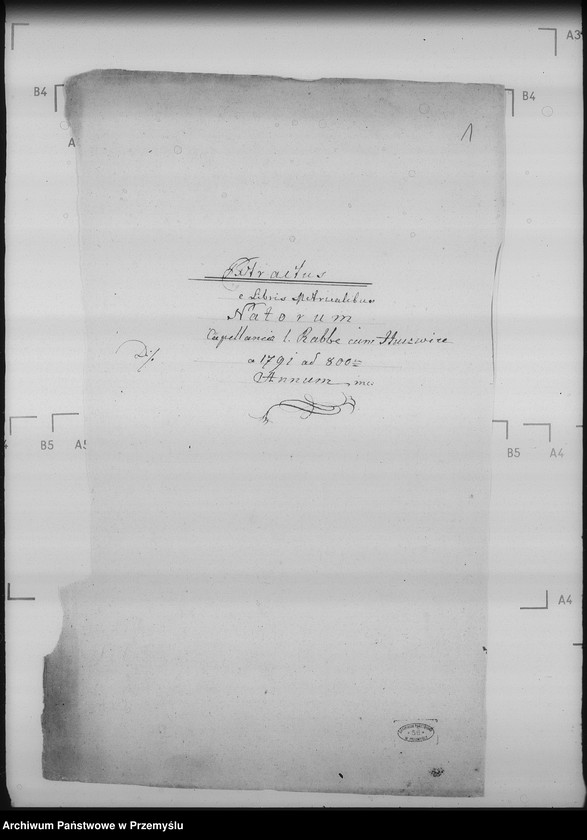 A3
B4
B4
A
1
Extractus
e Libris Metricalibus
Natorum
Capellaniæ l. Rabbe cum Huzwice
a 1791 ad 800
Annum
B5
A5
B5
A4
A4
Archiwum Państwowe w Przemyślu